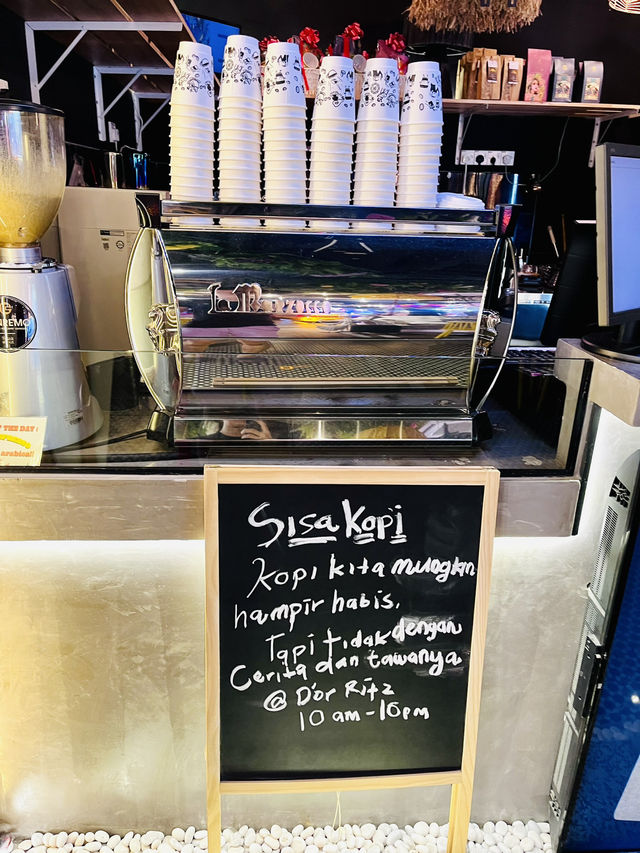 THE DAY:
arabica!!
Sisa Kopi
Kopi kita mungkin
hampir habis.
Tapi tidak dengan
Cerita dan tawanya
@ D'or Ritz
10 am - 10pm